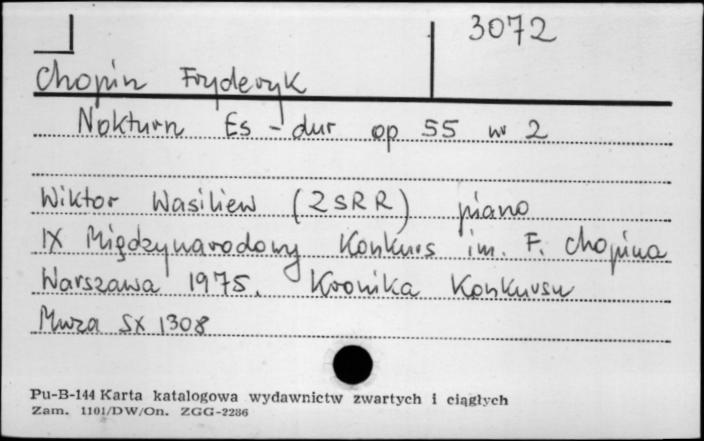 3072
Chopin Fryderyk
Nokturn Es-dur op 55 nr 2
Wiktor Wasiliew (ZSRR) piano
IX Międzynarodowy Konkurs im. F. Chopina
Warszawa 1975. Kronika Konkursu
Muza SX 1308
Pu-B-144 Karta katalogowa wydawnictw zwartych i ciągłych
Zam. 1101/DW/On. ZGG-2286